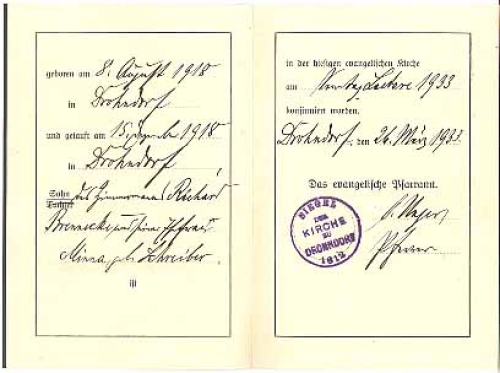 geboren am 8. August 1918
in Drohndorf
und getauft am 15. September 1918
in Drohndorf
Sohn des Zimmermanns Richard
Tochter
Brenecke und seiner Ehefrau
Minna, geb. Schreiber.
ist
in der hiesigen evangelischen Kirche
am Sonntag Laetare 1933
konfirmiert worden.
Drohndorf, den 26. März 1933
Das evangelische Pfarramt.
Pfarrer
SIEGEL
DER
KIRCHE
ZU
DROHNDORF
1812